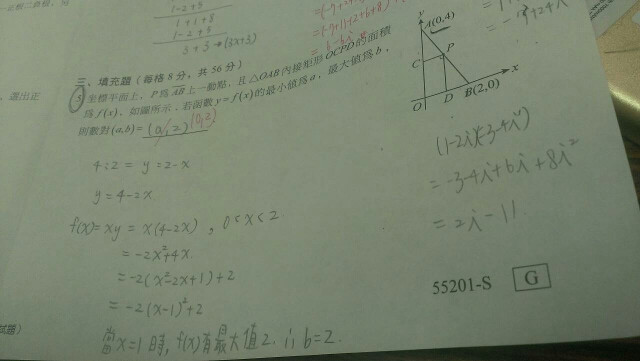 1-2+5
1+1+8
1-2+5
3+3→(3x+3)
三、填充題(每格 8 分,共 56 分)
5. 坐標平面上,P 為 AB 上一動點,且 △OAB 內接矩形 OCPD 的面積
為 f(x),如圖所示,若函數 y=f(x) 的最小值為 a,最大值為 b,
則數對 (a,b)= (0,2) (0,2)
y
A(0,4)
C
P
O
D
B(2,0)
x
4:2 = y:2-x
y=4-2x
f(x)=xy = x(4-2x) , 0<x<2
= -2x²+4x
= -2(x²-2x+1)+2
= -2(x-1)²+2
當x=1時, f(x)有最大值2. ∴ b=2.
(1-2i)(-3-4i)
= -3-4i+6i+8i²
= 2i-11
55201-S
G